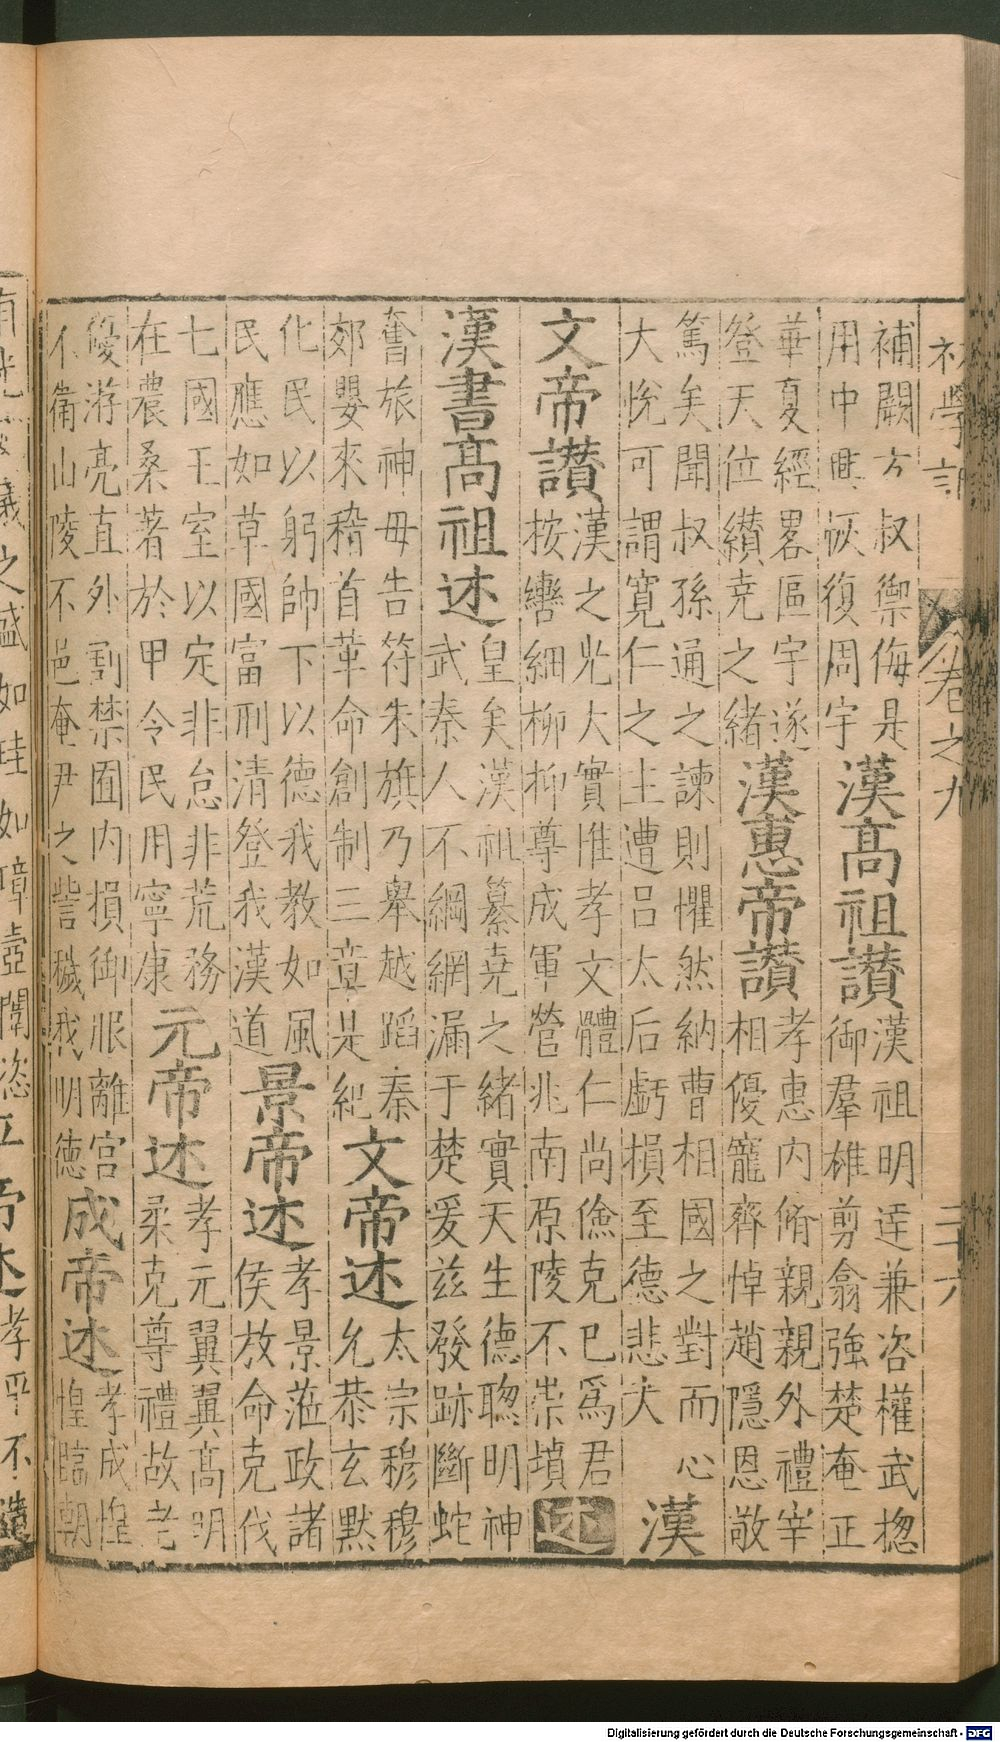 初學記 卷之九 二十六
補闕方叔禦侮是
用中興恢復周宇
漢高祖讃
漢祖明達兼咨權武揔
御羣雄剪翕強楚奄正
華夏經畧區宇遂
登天位纘堯之緒
漢惠帝讃
孝惠内脩親親外禮宰
相優寵齊悼趙隱恩敬
篤矣聞叔孫通之諫則懼然納曹相國之對而心
大恱可謂寛仁之主遭吕太后虧損至德悲夫
漢
文帝讃
漢之光大實惟孝文體仁尚儉克已爲君
按轡細柳抑尊成軍營兆南原陵不崇墳
述
漢書髙祖述
皇矣漢祖纂堯之緒實天生德聰明神
武秦人不綱網漏于楚爰兹發跡斷蛇
奮旅神毋告符朱旗乃舉越蹈秦
郊嬰來稽首革命創制三章是紀
文帝述
太宗穆穆
允恭玄默
化民以躬帥下以德我教如風
民應如草國富刑清登我漢道
景帝述
孝景蒞政諸
侯放命克伐
七國王室以定非怠非荒務
在農桑著於甲令民用寧康
元帝述
孝元翼翼髙明
柔克尊禮故老
優游亮直外割禁囿内損御服離宮
不衛山陵不邑奄尹之訾穢我明德
成帝述
孝成惶
惶臨朝
Digitalisierung gefördert durch die Deutsche Forschungsgemeinschaft - DFG